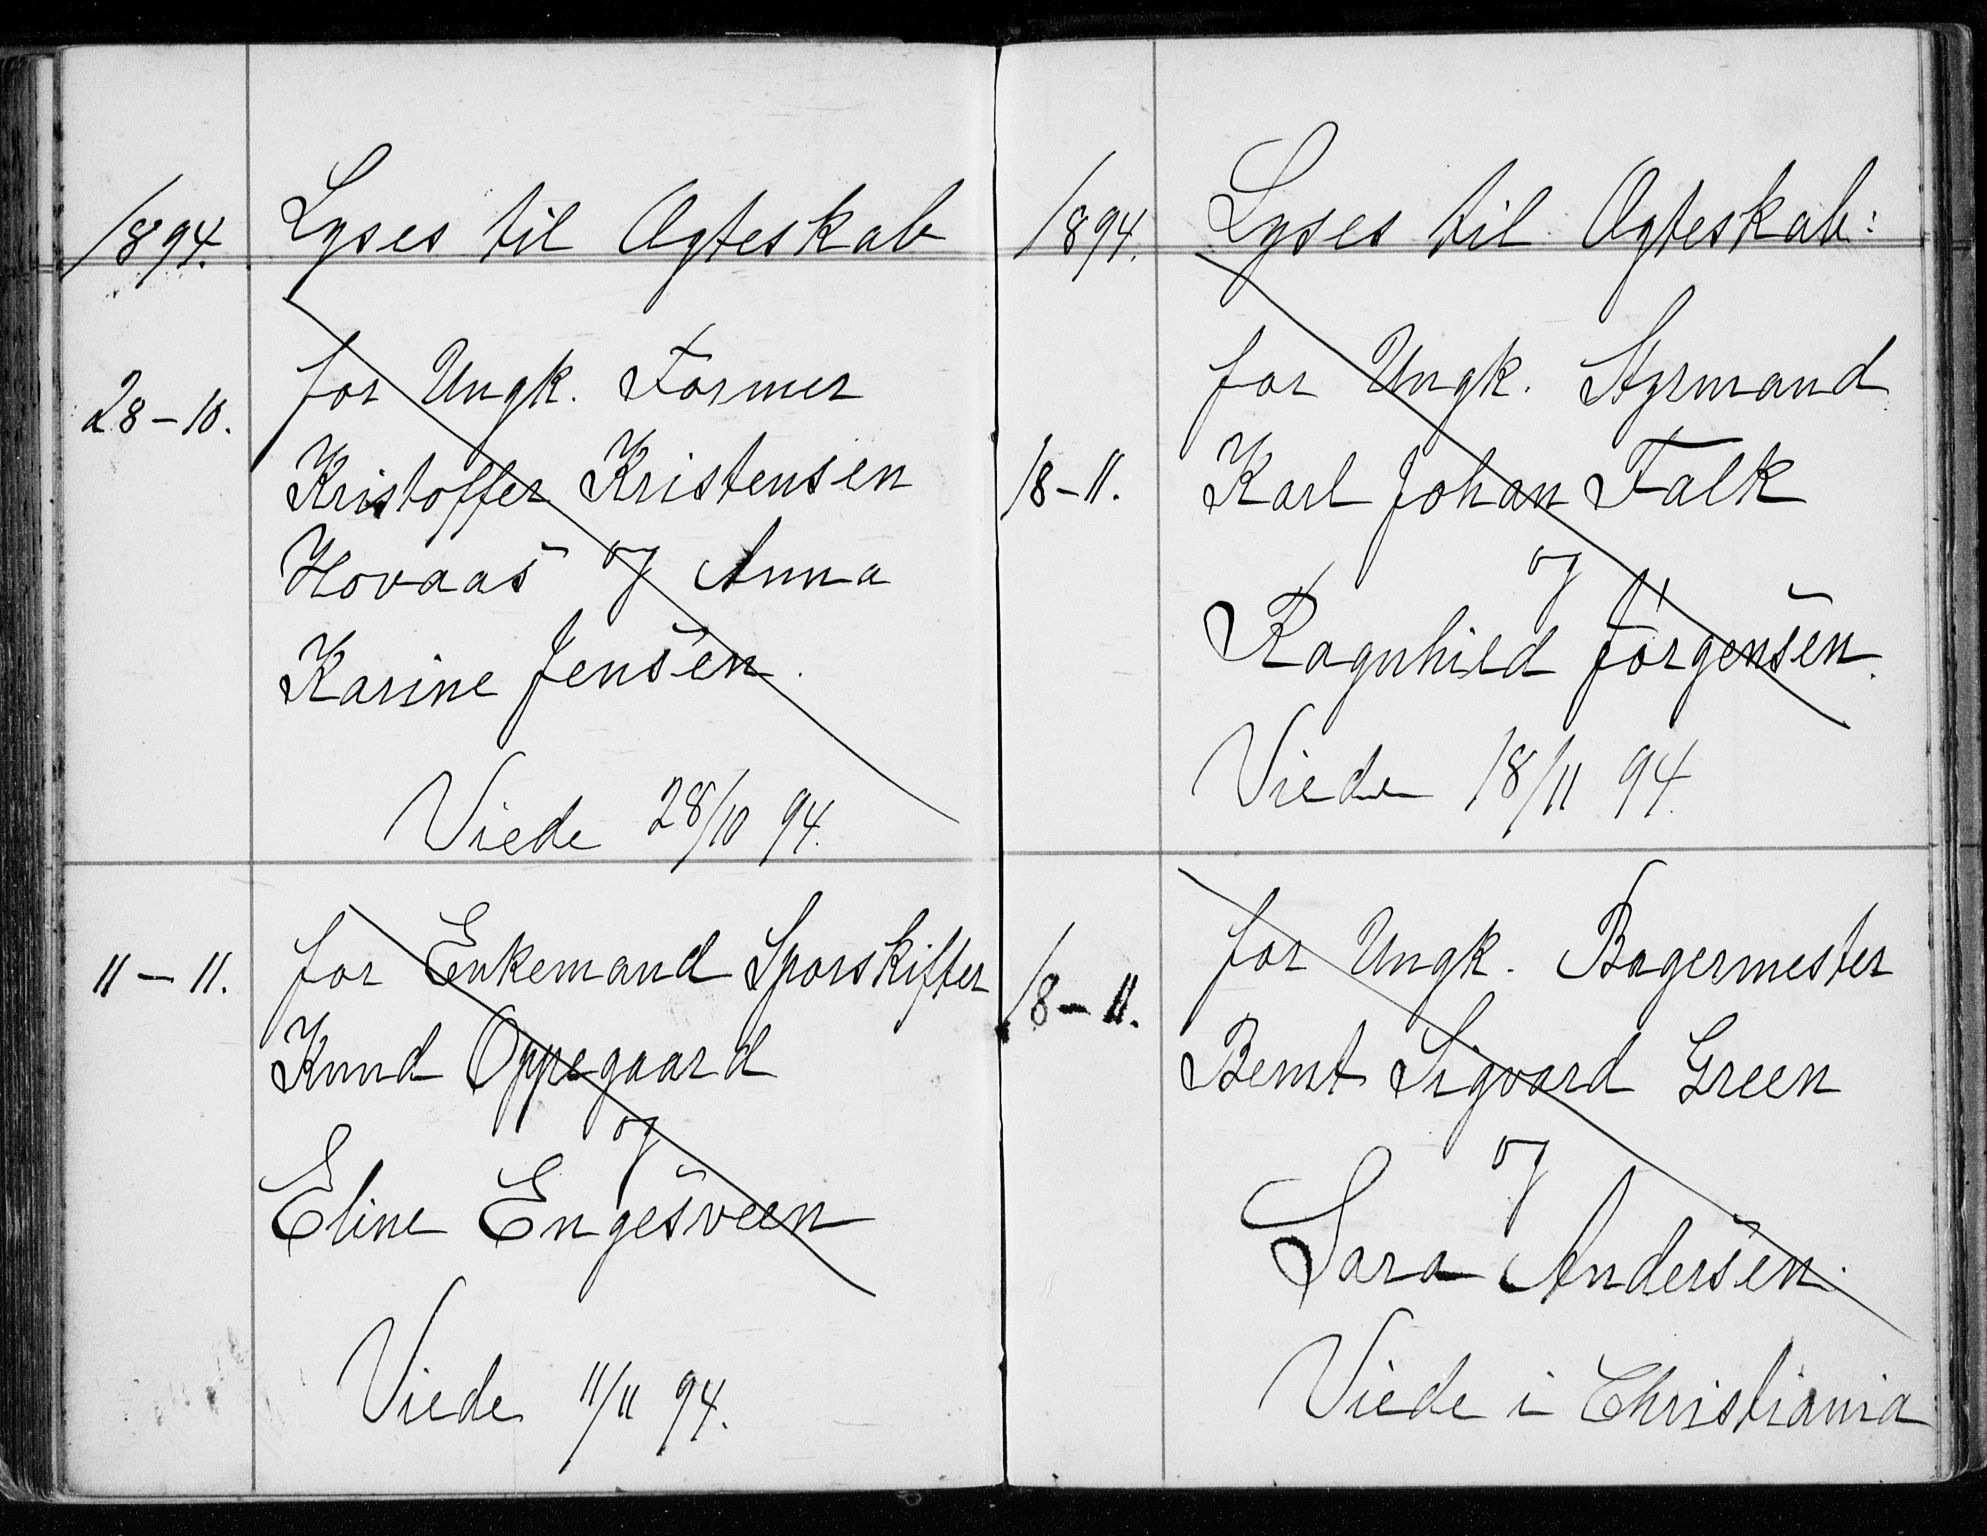 1894. Lyses til Ægteskab
28-10. for Ungk. Former
Kristoffer Kristensen
Hovaas og Anna
Karine Jensen.
Viede 28/10 94.
11-11. for Enkemand Sporskifter
Knud Oppegaard
og
Eline Engesveen
Viede 11/11 94.
1894. Lyses til Ægteskab:
for Ungk. Styrmand
18-11. Karl Johan Falk
og
Ragnhild Jörgensen.
Viede 18/11 94.
for Ungk. Bagermester
18-11.
Bernt Sigvard Green
og
Sara Andersen.
Viede i Christiania